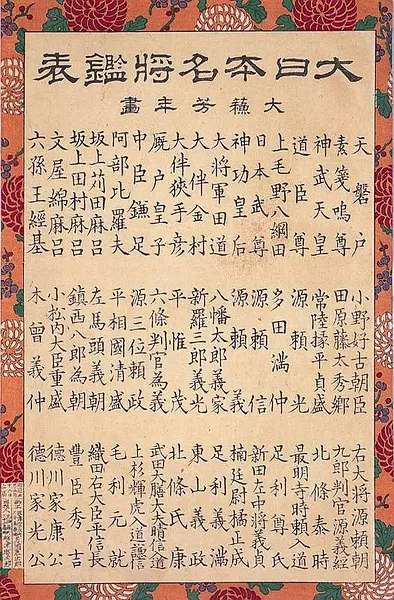 大日本名將鑑表
大蘓芳年畫
天磐戸
素箋嗚尊
神武天皇
道臣尊
上毛野八綱田
日本武尊
神功皇后
大将軍田道
大伴金村
大伴狹手彦
厩戸皇子
中臣鎌足
阿部比羅夫
坂上苅田麻呂
坂上田村麻呂
文屋綿麻呂
六孫王經基
小野好古朝臣
田原藤太秀郷
常陸掾平貞盛
源頼光
多田満仲
源頼信
源頼義
八幡太郎義家
新羅三郎義光
平惟茂
六條判官為義
源三位頼政
平相國清盛
左馬頭義朝
鎮西八郎為朝
小松内大臣重盛
木曽義仲
右大将源頼朝
九郎判官源義經
北條泰時
最明寺時頼入道
足利尊氏
新田左中将義貞
楠廷尉橘正成
足利義満
東山義政
北條氏康
武田大膳大夫晴信入道
上杉輝虎入道謙信
毛利元就
織田右大臣平信長
豊臣秀吉
徳川家康公
徳川家光公